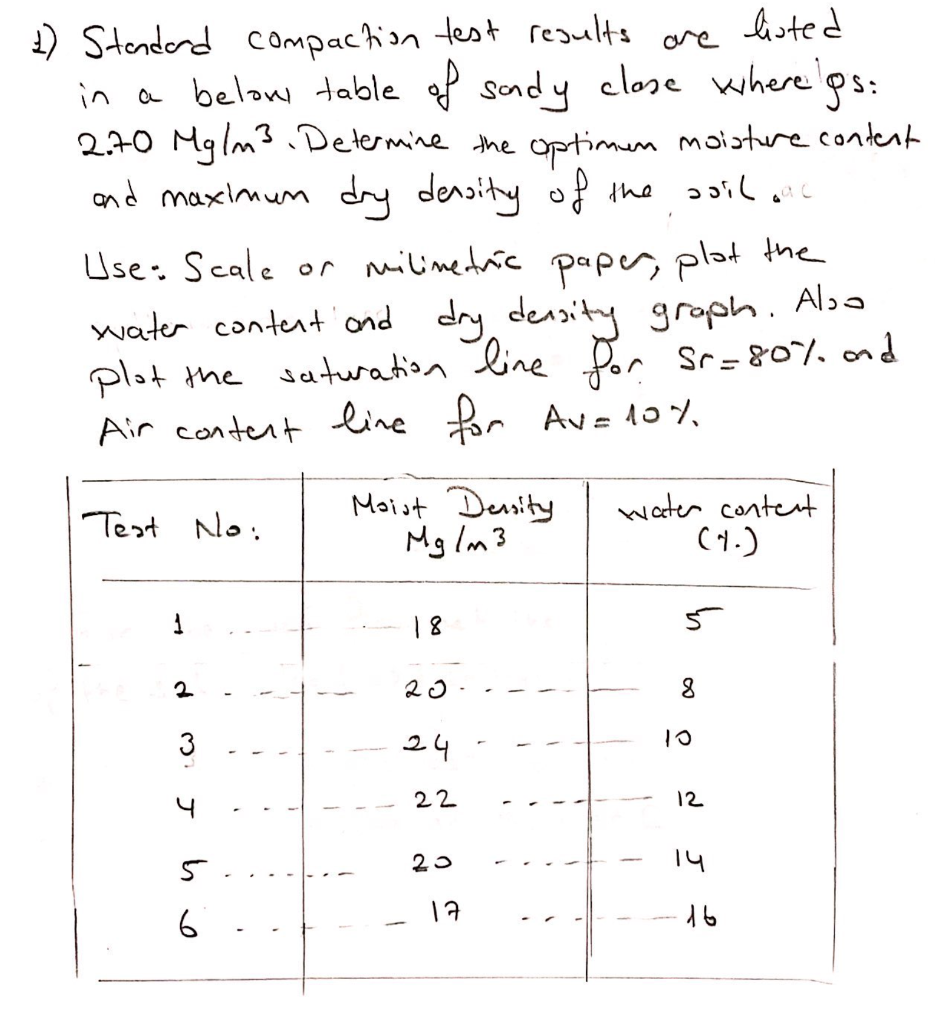 1) Standard compaction test results are listed
in a below table of sandy close where ρs:
2.70 Mg/m3. Determine the optimum moisture content
and maximum dry density of the soil.
Use: Scale or milimetric paper, plot the
water content and dry density graph. Also
plot the saturation line for Sr=80%. and
Air content line for Av=10%.
Test No: Moist Density Mg/m3 water content (%.)
1 18 5
2 20 8
3 24 10
4 22 12
5 20 14
6 17 16